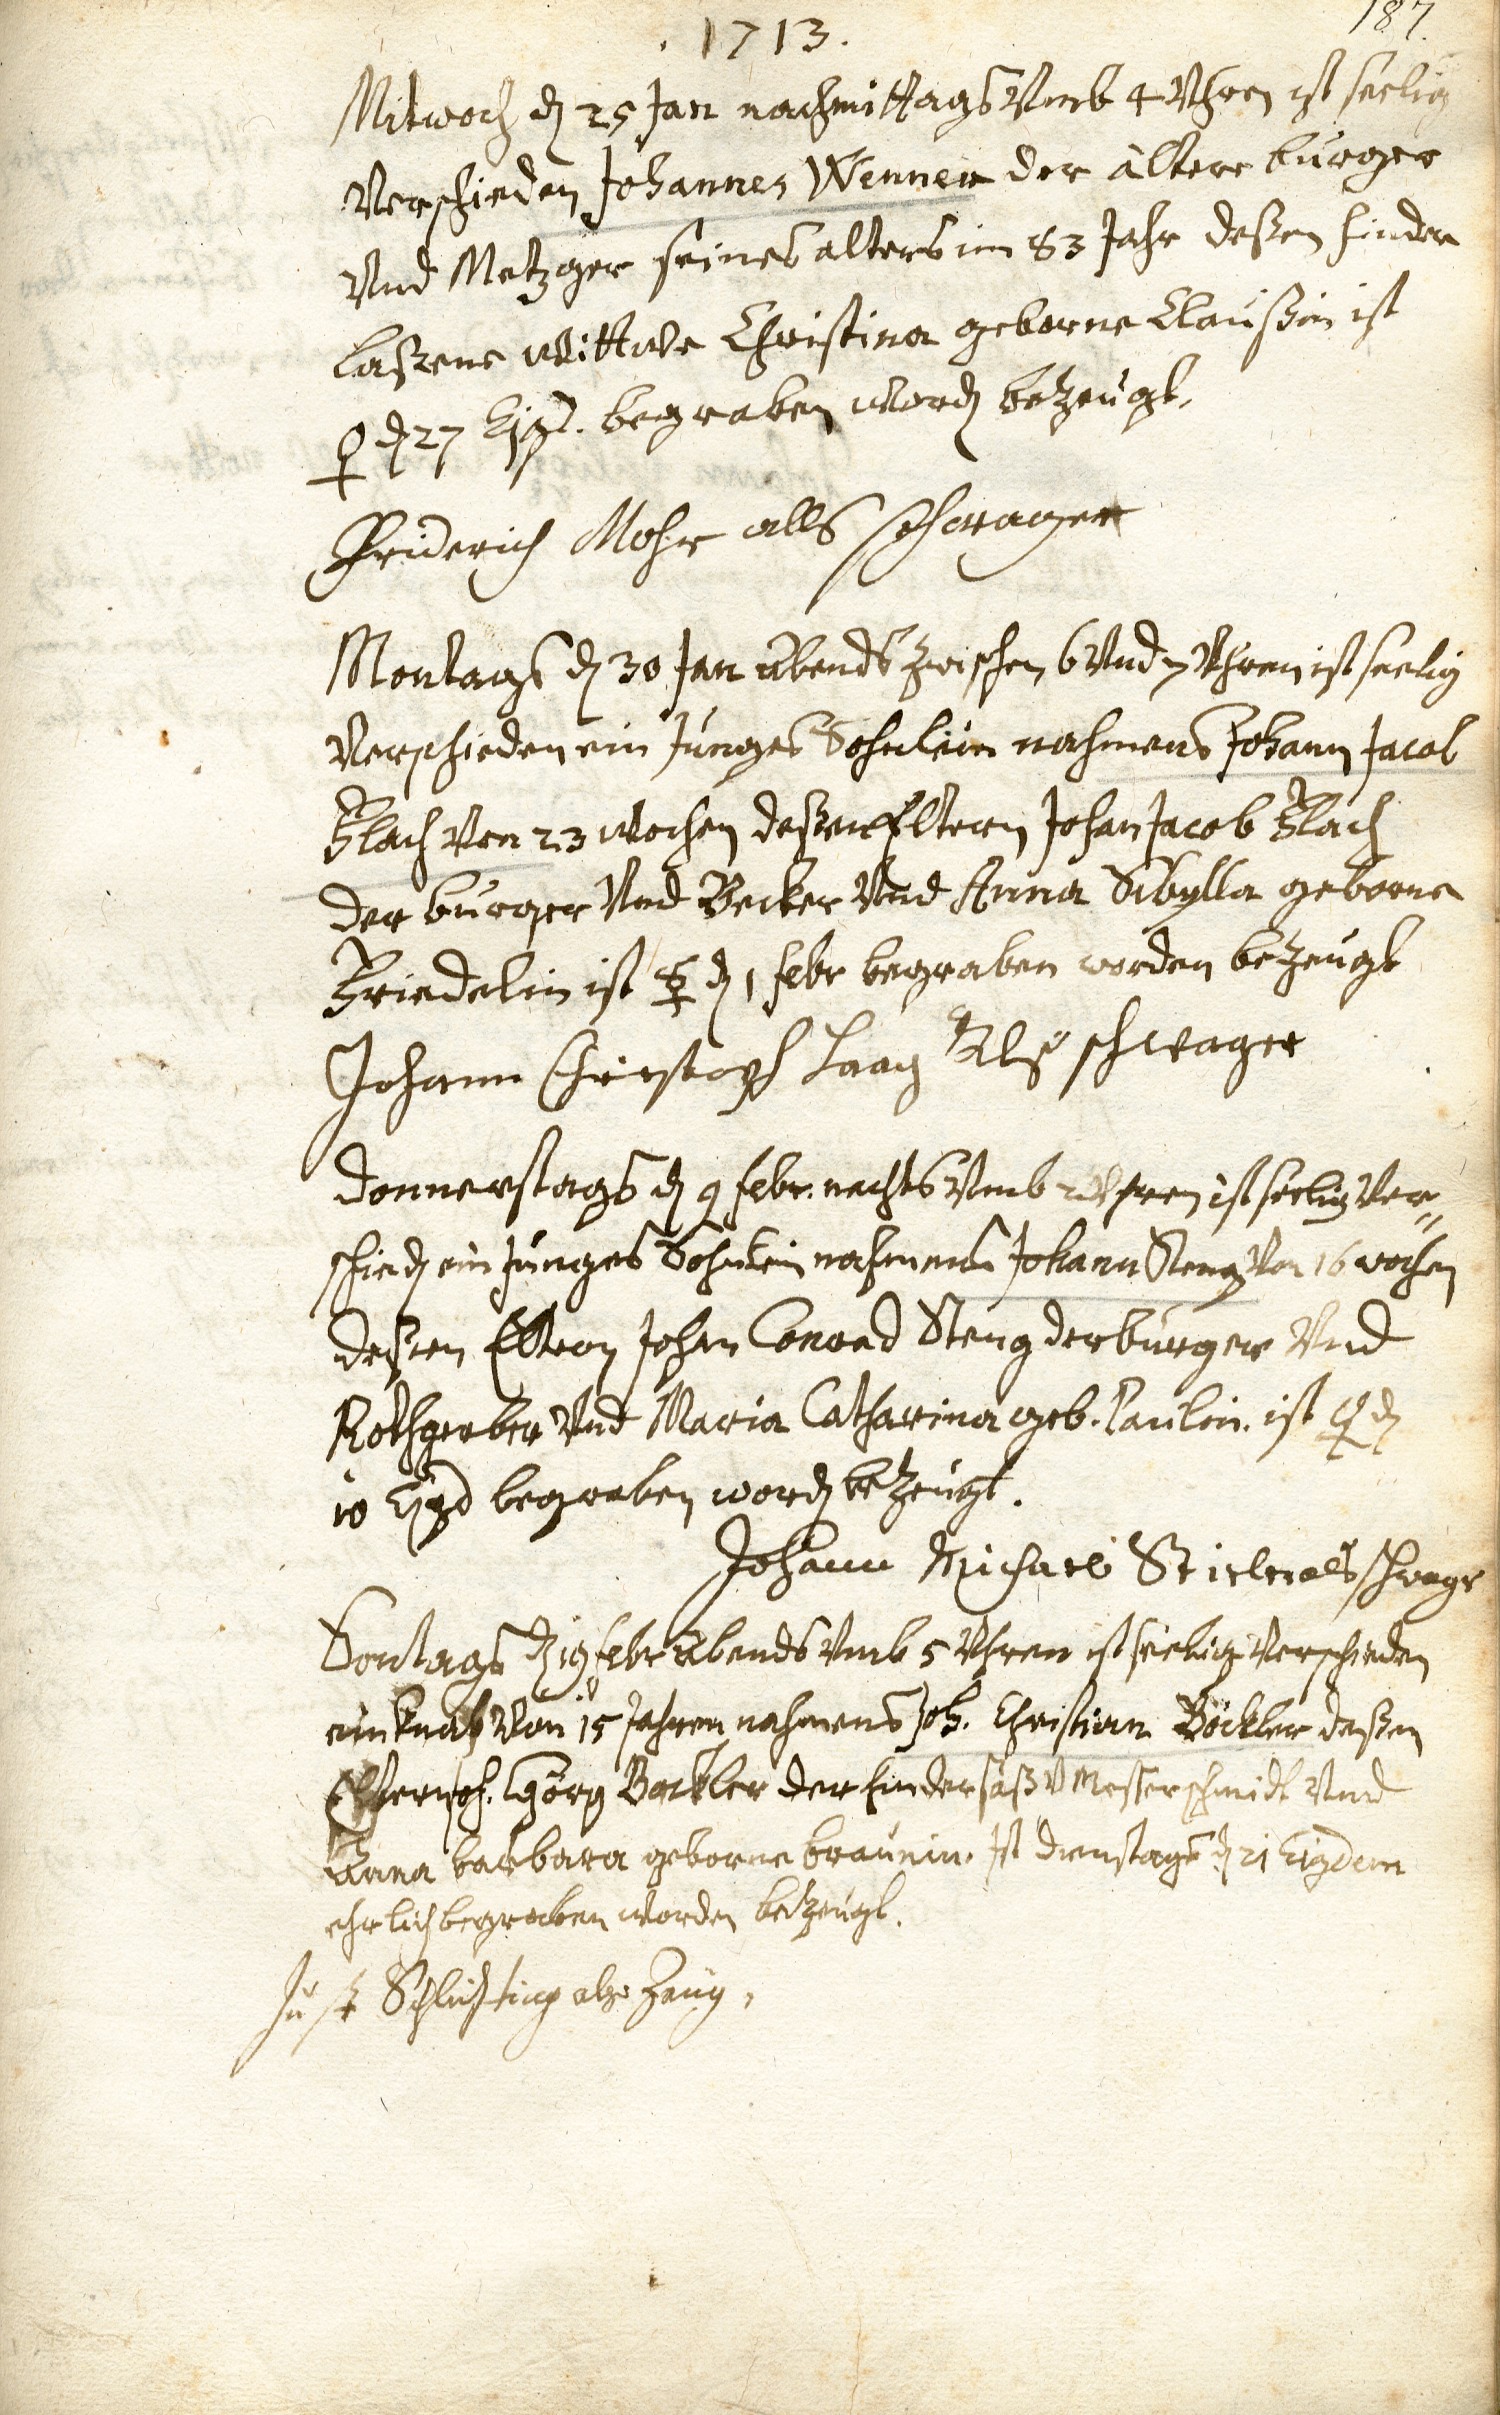 187.
. 1713.
Mitwoch dn 25 Jan nachmittags Vmb 4 Vhren ist seelig
Verschieden Johannes Wenner der ältere burger
Vnd Metzger seines alters im 83 Jahr deßen hinder
laßene wittwe Christina geborne Claußin ist
♀ dn 27 Ejsd. begraben word bezeugt.
Friderich Mohr alls schwager
Montags dn 30 Jan abends zwischen 6 Vnd 7 Vhren ist seelig
Verschieden ein junges Sohnlein nahmens Johann Jacob
Flach Von 23 wochen deßen Eltern Johan Jacob Flach
der burger Vnd Becker Vnd Anna Sibylla geborne
Friedelin ist ☿ dn 1 febr begraben worden bezeugt
Johann Christoph Laag Alß schwager
Donnerstags dn 9 febr. nachts Vmb 2 Vhren ist seelig Ver„
schieden ein junges Sohnlein nahmens Johann Steng Von 16 wochen
deßen Eltern Johan Conrad Steng der burger Vnd
Rothgerber Vnd Maria Catharina geb. Paulin. ist ♀ dn
10 Ejsd begraben word bezeugt.
Johann Michael als schwager
Sontags dn 19 febr abends Vmb 5 Vhren ist seelig Verschieden
ein knab Von 15 Jahren nahmens Joh. Christian Böckler deßen
Eltern Joh. Görg Böckler der hindersaß V Messerschmidt Vnd
Anna barbara geborne braunin. Ist dienstags dn 21 Eisdem
ehrlich begraben worden bezeugt.
Just Schlichting alß Zeug,